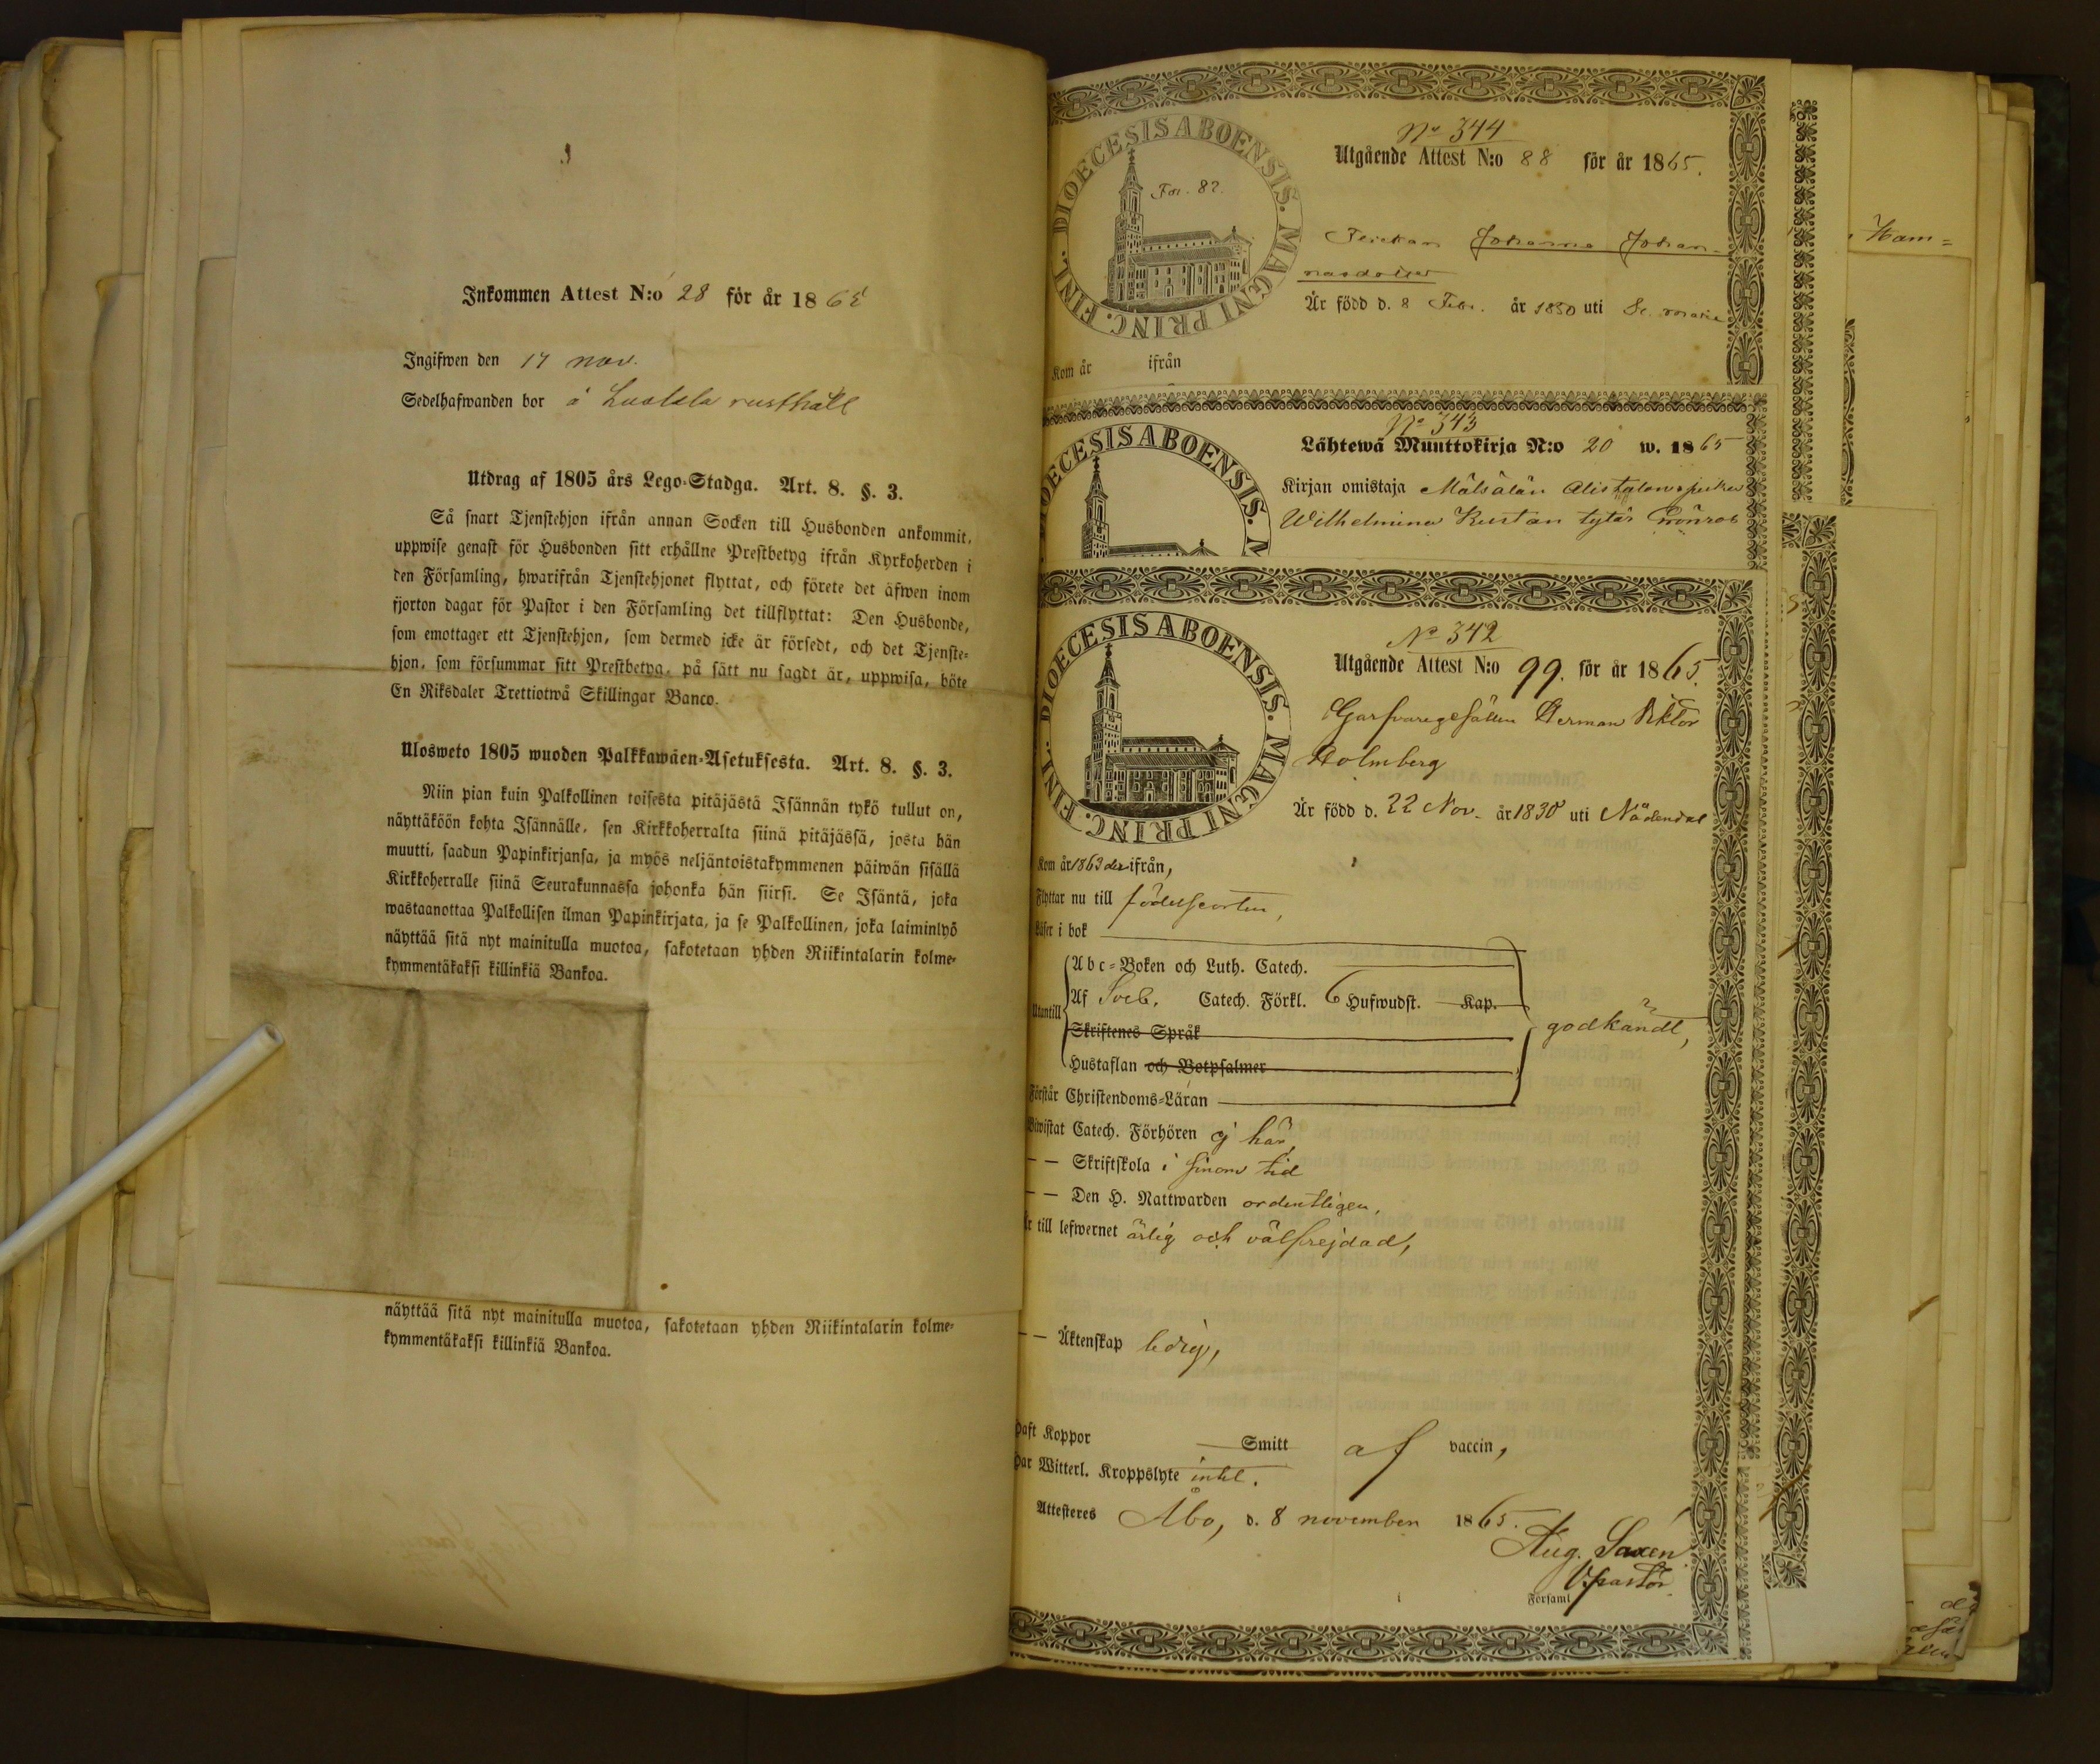 Inkommen Attest N:o 28 för år 186
Ingifwen den 17 nov.
Sedelhafwanden bor å rusthåll
Utdrag af 1805 års Lego-Stadga. Art. 8. §. 3.
Så snart Tjenstehjon ifrån annan Socken till Husbonden ankommit,
uppwise genast för Husbonden sitt erhållne Prestbetyg ifrån Kyrkoherden i
den Församling, hwarifrån Tjenstehjonet flyttat, och förete det äfwen inom
fjorton dagar för Pastor i den Församling det tillflyttat: Den Husbonde,
som emottager ett Tjenstehjon, som dermed icke är försedt, och det Tjenste-
hjon, som försummar sitt Prestbetyg, på sätt nu sagdt är, uppwisa, böte
En Riksdaler Trettiotwå Skillingar Banco.
Ulosweto 1805 wuoden Palkkawäen-Asetuksesta. Art. 8. §. 3.
Niin pian kuin Palkollinen toisesta pitäjästä Isännän tykö tullut on,
näyttäköön kohta Isännälle, sen Kirkkoherralta siinä pitäjässä, josta hän
muutti, saadun Papinkirjansa, ja myös neljäntoistakymmenen päiwän sisällä
Kirkkoherralle siinä Seurakunnassa johonka hän siirsi. Se Isäntä, joka
wastaanottaa Palkollisen ilman Papinkirjata, ja se Palkollinen, joka laiminlyö
näyttää sitä nyt mainitulla muotoa, sakotetaan yhden Riikintalarin kolme-
kymmentäkaksi killinkiä Bankoa.
näyttää sitä nyt mainitulla muotoa, sakotetaan yhden Riikintalarin kolme-
kymmentäkaksi killinkiä Bankoa.
No 344
Utgående Attest N:o 88 för år 1865.
DIOECESIS ABOENSIS. MAGNI PRINC. FINL.
Fol. 82.
Flickan Johanna Johan-
nasdotter
Är född d. 8 Febr. år 1850 uti St. Marie
Kom år ifrån
No 343
Lähtewä Muuttokirja N:o 20 w. 1865
OECESIS ABOENSIS. M
Kirjan omistaja Alistalon
Wilhelmina Kustan tytär Grönros
No 342
Utgående Attest N:o 99. för år 1865.
DIOECESIS ABOENSIS. MAGNI PRINC. FINL.
Garfvaregesällen Herman Viktor
Holmberg
Är född d. 22 Nov. år 1830 uti Nådendal
Kom år 1863 der ifrån,
Flyttar nu till födelseorten,
Läser i bok
Abc-Boken och Luth. Catech.
Utantill Af Sveb. Catech. Förkl. 6 Hufwudst. Kap.
godkändt,
Skriftenes Språk
Hustaflan och Botpsalmer
Förstår Christendoms-Läran
Biwistat Catech. Förhören ej här,
— — Skriftskola i sinom tid
— — Den H. Nattwarden ordentligen,
Är till lefwernet ärlig och välfrejdad,
— — Äktenskap ledig,
Haft Koppor Smitt af vaccin,
Har Witterl. Kroppslyte intet.
Attesteres Åbo, d. 8 november 1865.
Aug. Saxén
V.pastor
Församl
Kam=